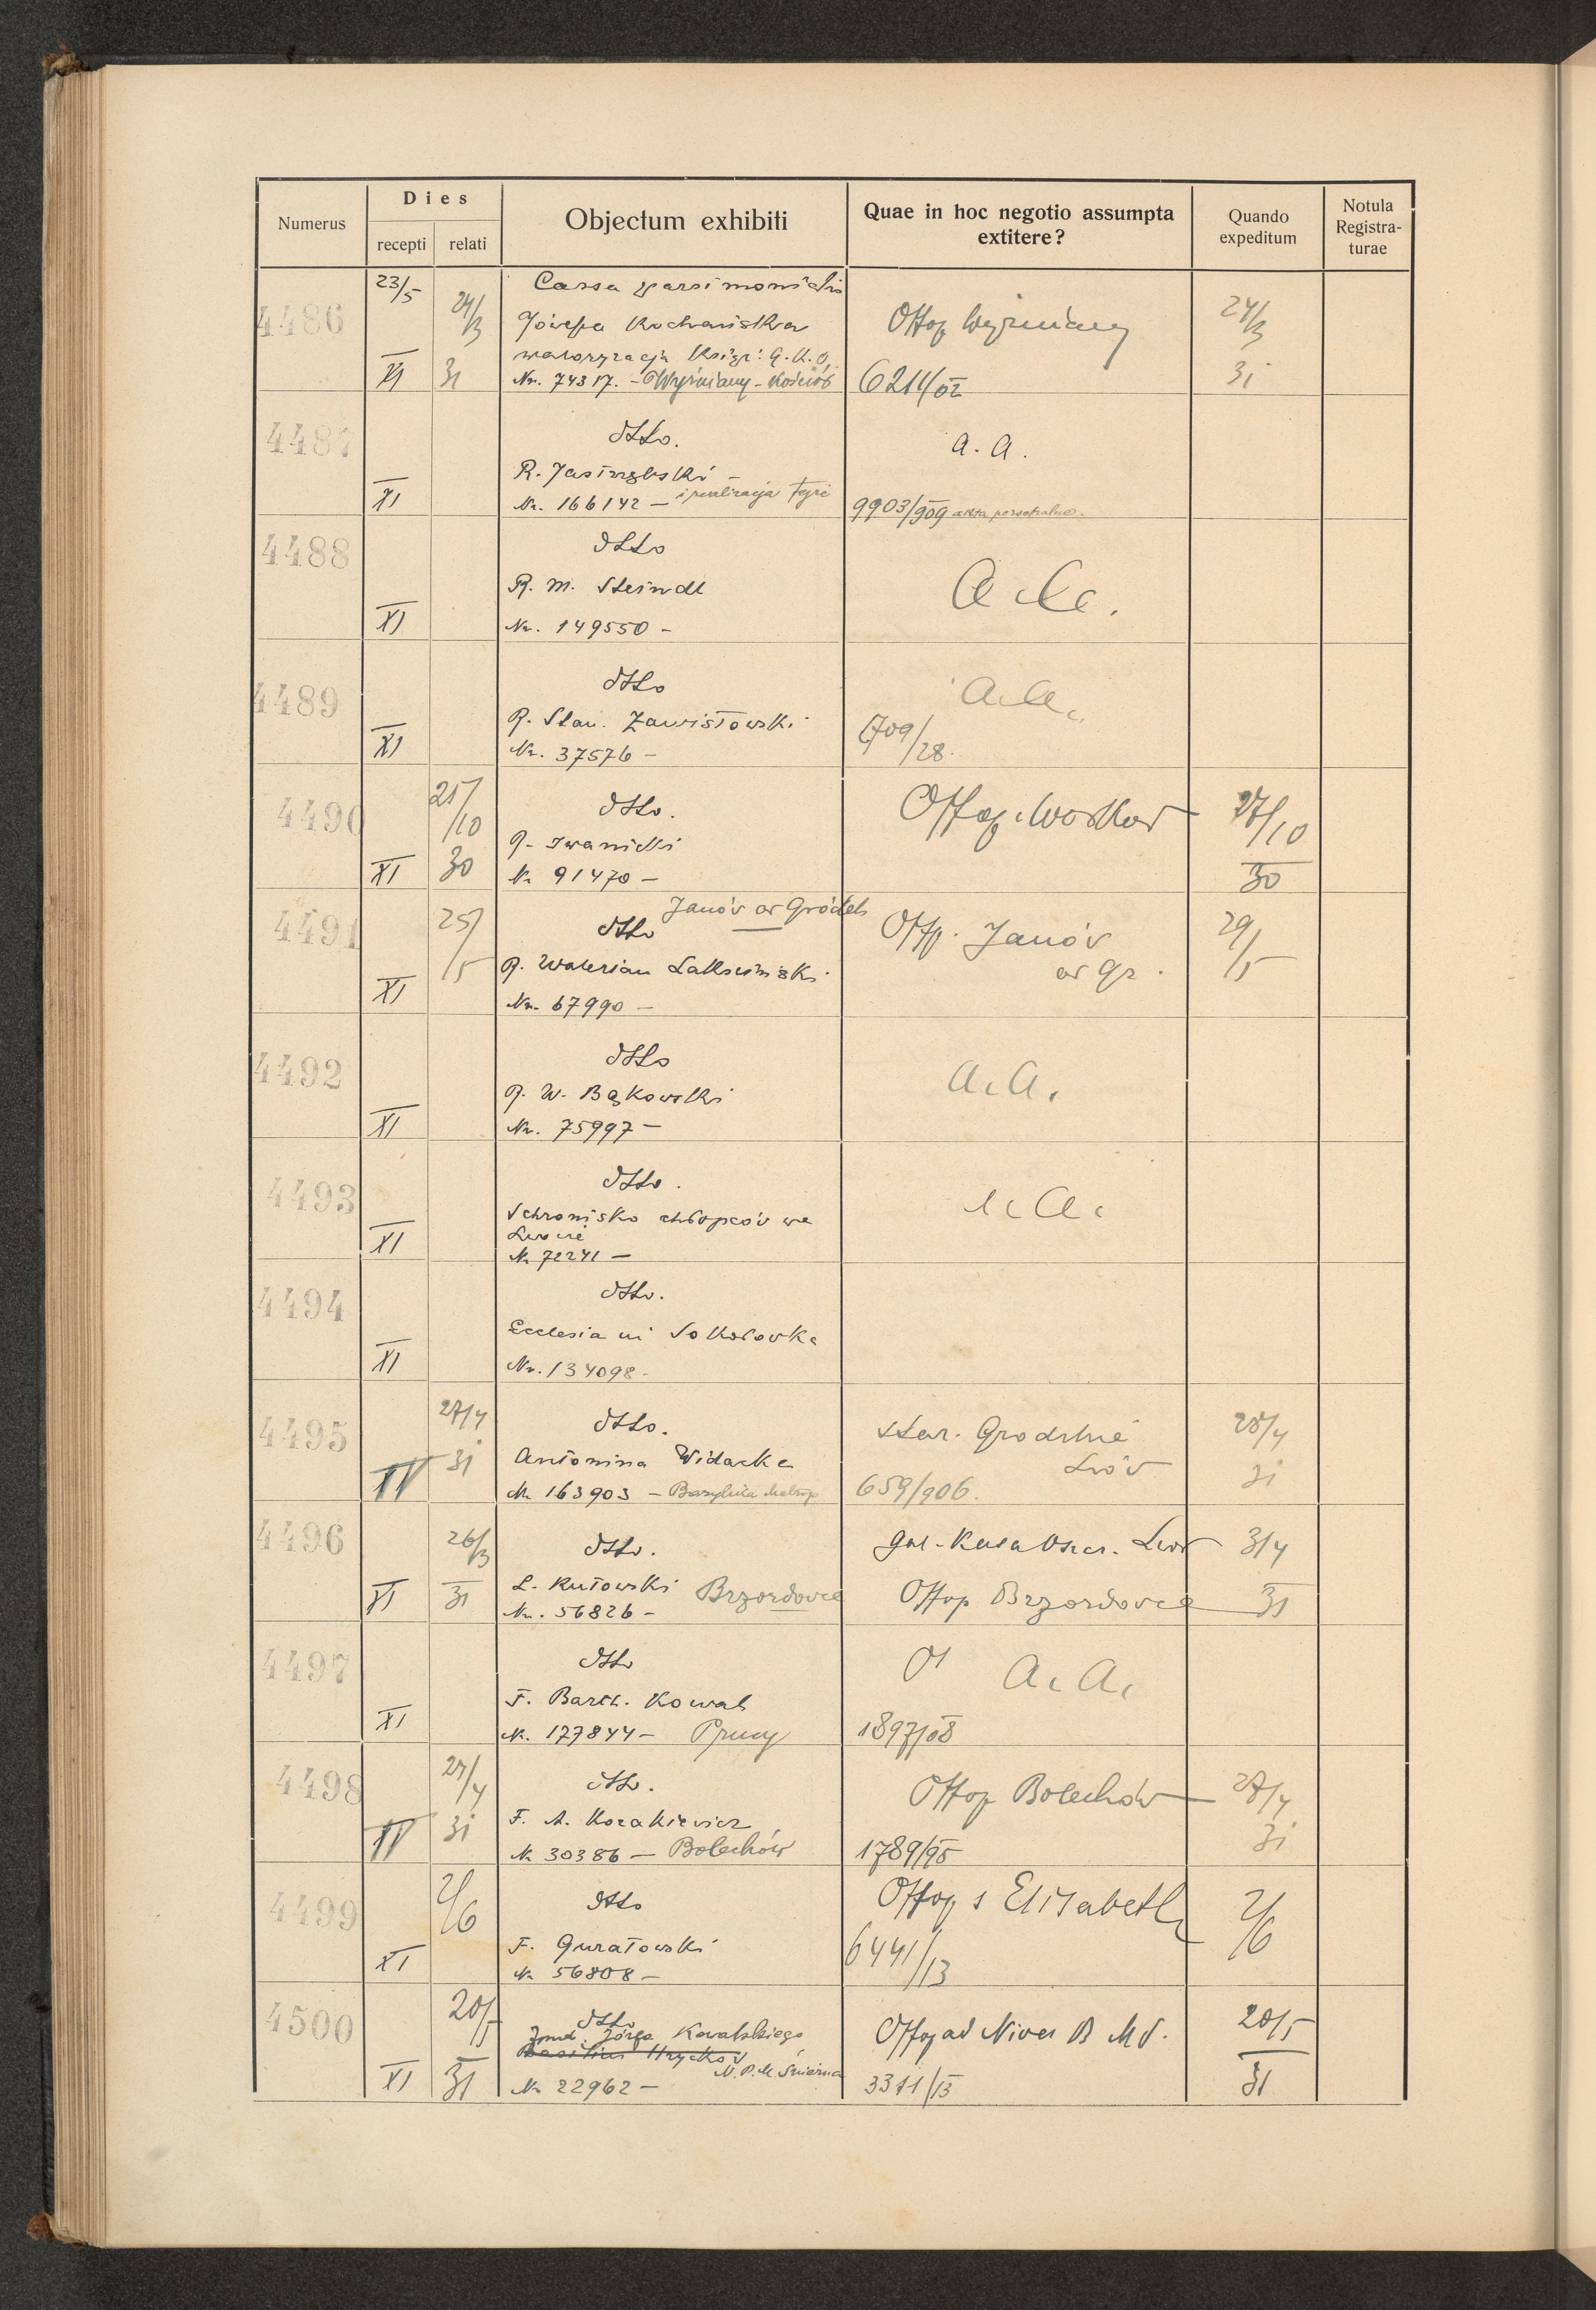 Numerus
Dies
recepti
relati
Objectum exhibiti
Quae in hoc negotio assumpta
extitere?
Quando
expeditum
Notula
Registra-
turae
4486
23/5
XI
24/3
31
Józefa Kochańska
waloryzacja Książ: G.K.O.
Nr. 74317. - Wyżniany - Kościół
Offop Wyżniany
6211/02
24/3
31
4487
XI
dtto.
R.
Nr. 166142 - i realizacja tejże
a. a.
9903/909 akta personalne.
4488
XI
dtto
R. M. Steindl
Nr. 149550 -
a. a.
4489
XI
dtto
R. Stan. Zawistowski
Nr. 37576 -
a. a.
1709/28.
4490
XI
25/10
30
dtto.
R. Iwanicki
Nr 91470 -
Offop.
27/10
30
4491
XI
25/5
Janów ar Gródek
dtto
R. Walerian
Nr. 67990 -
Offp. Janów
ar Gr.
29/5
4492
XI
dtto
R. W. Bąkowski
Nr. 75997 -
a. a.
4493
XI
dtto.
Schronisko chłopców we
Lwowie
Nr 72241 -
a. a.
4494
XI
dtto.
Ecclesia in Sokołovka
Nr. 134098 -
4495
XI
27/4
31
dtto.
Antonina Widacka
Nr. 163903 - Bazylika Metrop
Star. Grodzkie
Lwów
659/906.
28/4
31
4496
XI
26/3
31
dtto.
L. Rutowski Brzozdowce
Nr. 56826 -
Gal. Kasa Oszcz. Lwów
Offop Brzozdovce
3/4
31
4497
XI
dtto
F. Barth. Kowal
Nr. 177844 - Prusy
a. a.
1897/08
4498
XI
27/4
31
dtto.
F. A. Kozakievicz
Nr 30386 - Bolechów
Offop Bolechów
1789/95
28/4
31
4499
XI
2/6
dtto
F. Guratowski
Nr 56808 -
Offop s Elisabeth
6441/13
2/6
4500
XI
20/5
31
dtto
Fund. Józefa Kowalskiego
Basilius Hryckov
N. P. M. Śnieżna
Nr 22962 -
Offop ad Nives B M V.
3311/13
20/5
31